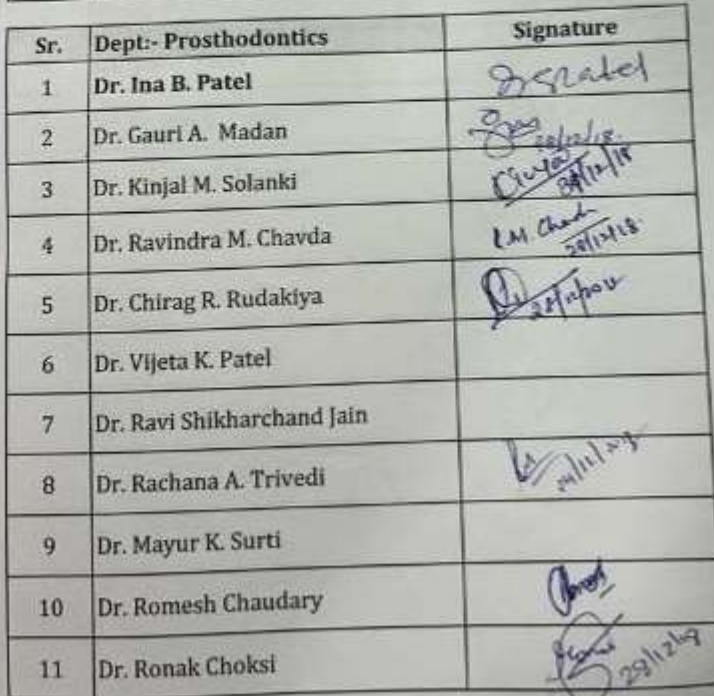 Sr. Dept:- Prosthodontics Signature
1 Dr. Ina B. Patel
2 Dr. Gauri A. Madan 28/12/18.
3 Dr. Kinjal M. Solanki
4 Dr. Ravindra M. Chavda 28/12/18.
5 Dr. Chirag R. Rudakiya
6 Dr. Vijeta K. Patel
7 Dr. Ravi Shikharchand Jain
8 Dr. Rachana A. Trivedi
9 Dr. Mayur K. Surti
10 Dr. Romesh Chaudary
11 Dr. Ronak Choksi 28/12/18